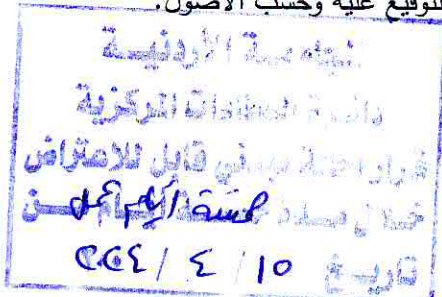 للتوقيع عليه وحسب الأصول.
الجامعة الأردنية
دائرة العطاءات المركزية
قرار إحالة مبدئي قابل للاعتراض
خلال مدة خمسة أيام عمل من
تاريخ ١٥ / ٤ / ٢٠٢٤